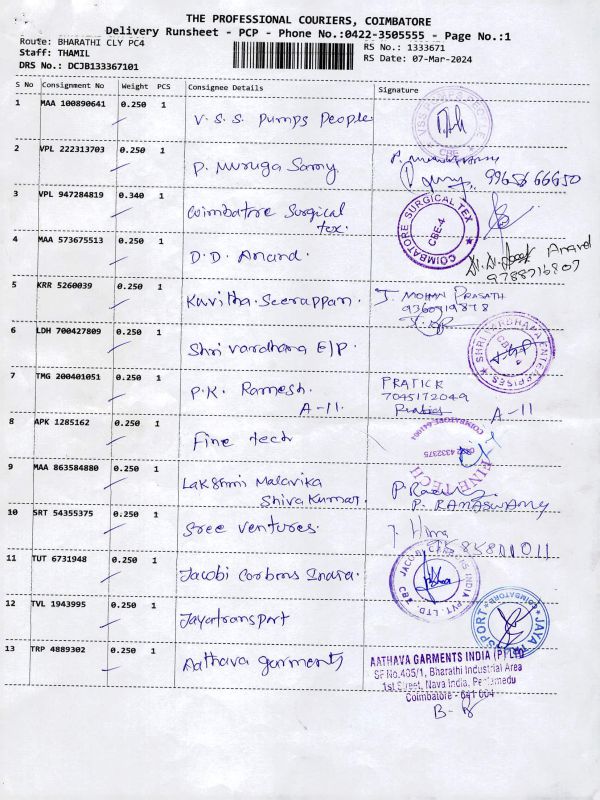 THE PROFESSIONAL COURIERS, COIMBATORE
Delivery Runsheet - PCP - Phone No.:0422-3505555 - Page No.:1
Route: BHARATHI CLY PC4
RS No.: 1333671
Staff: THAMIL
RS Date: 07-Mar-2024
DRS No.: DCJB133367101
S No Consignment No Weight PCS Consignee Details Signature
1 MAA 100890641 0.250 1
V.S.S Pumps People
CBE
2 VPL 222313703 0.250 1
P. Muruga Samy
3 VPL 947284819 0.340 1
Coimbatore Surgical
tex.
COIMBATORE SURGICAL TEX
CBE-4
4 MAA 573675513 0.250 1
D.D. Anand.
Anand
5 KRR 5260039 0.250 1
Kavitha.Seerappan.
J. MOHAN PRASATH
6 LDH 700427809 0.250 1
Shri vardhana E/P.
7 TMG 200401051 0.250 1
P.K. Ramesh.
A-11.
PRATICK
7045172049
A-11
8 APK 1285162 0.250 1
Fine tech
FINE TECH
9 MAA 863584880 0.250 1
Lakshmi Malavika
Shivakumar.
P. RAMASWAMY
10 SRT 54355375 0.250 1
Sree ventures.
11 TUT 6731948 0.250 1
Jacobi Corbons India.
12 TVL 1943995 0.250 1
Jayatransport
13 TRP 4889302 0.250 1
Aathava garments
AATHAVA GARMENTS INDIA (P) LTD
SF No.405/1, Bharathi Industrial Area
1st Street, Nava India, Peelamedu
Coimbatore - 641 004